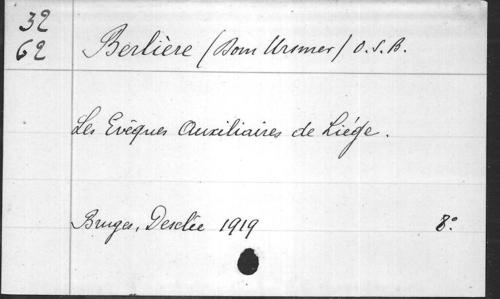 32
62
Berlière (Dom Ursmer) O.S.B.
Les Evêques Auxiliaires de Liége.
Bruges, Desclée 1919 8º